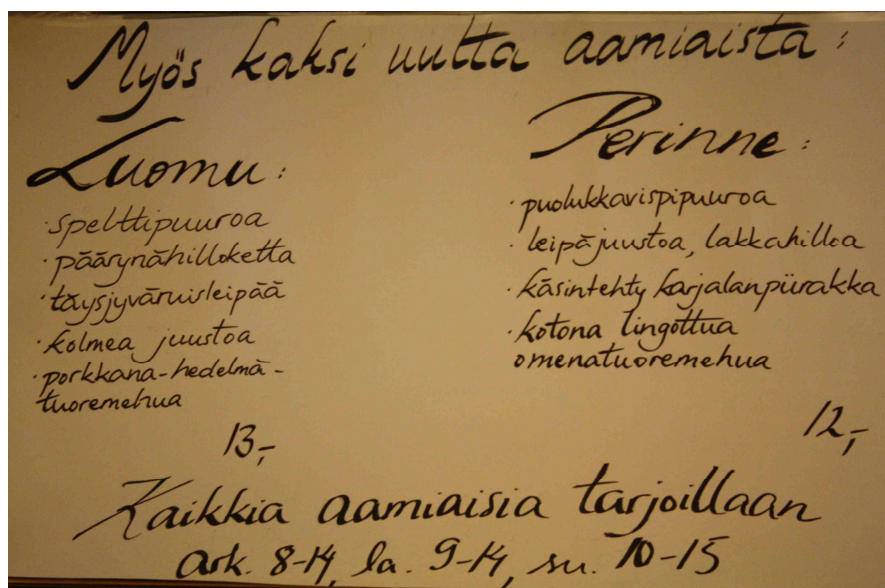 Myös kaksi uutta aamiaista:
Luomu:
· spelttipuuroa
· päärynähilloketta
· täysjyväruisleipää
· kolmea juustoa
· porkkana-hedelmä-
tuoremehua
13,-
Perinne:
· puolukkavispipuuroa
· leipäjuustoa, lakkahilloa
· käsintehty karjalanpiirakka
· kotona lingottua
omenatuoremehua
12,-
Kaikkia aamiaisia tarjoillaan
ark. 8-14, la. 9-14, su. 10-15